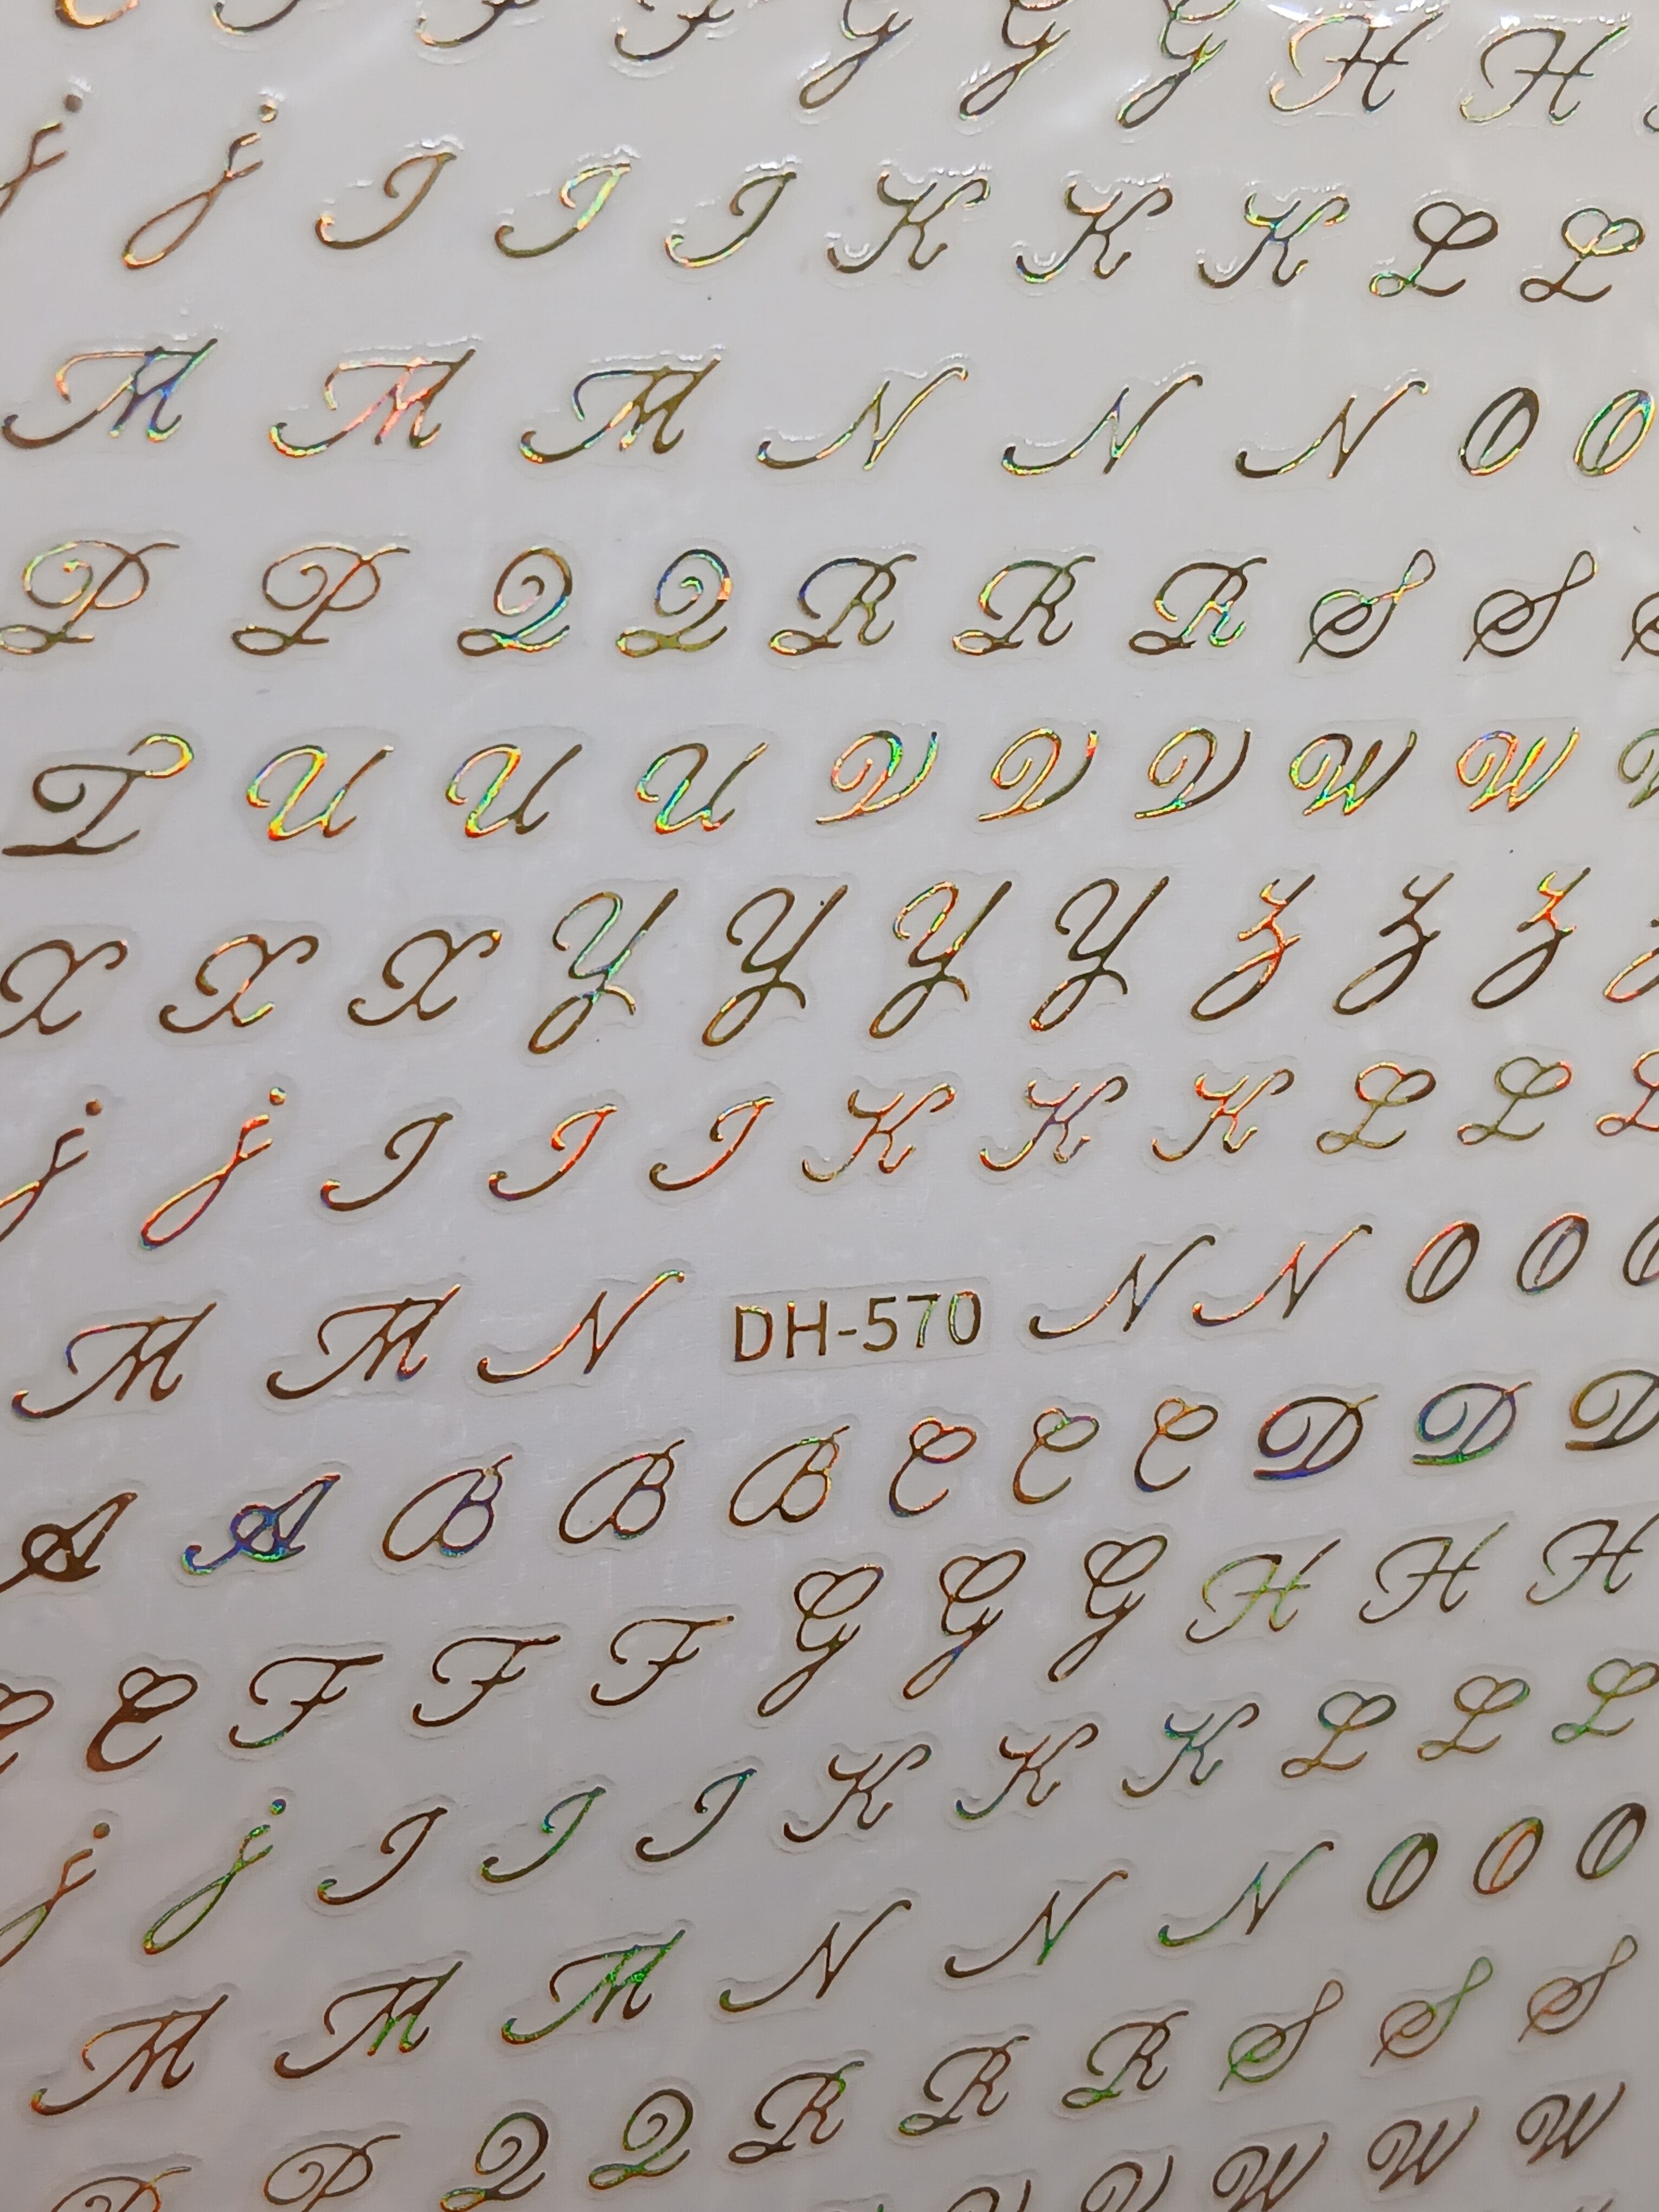 F F G G G H H
j j I I I K K K L L
M M M N N N O O
P P Q Q R R R S S S
T U U U V V V W W W
X X X Y Y Y Y Z Z Z Z
j j I I I K K K L L L
M M N DH-570 N N O O O
A A B B B C C C D D D
E E F F F G G G H H H
j j I I I K K K L L L
M M M N N N O O O
P P Q Q R R R S S S
V V W W W